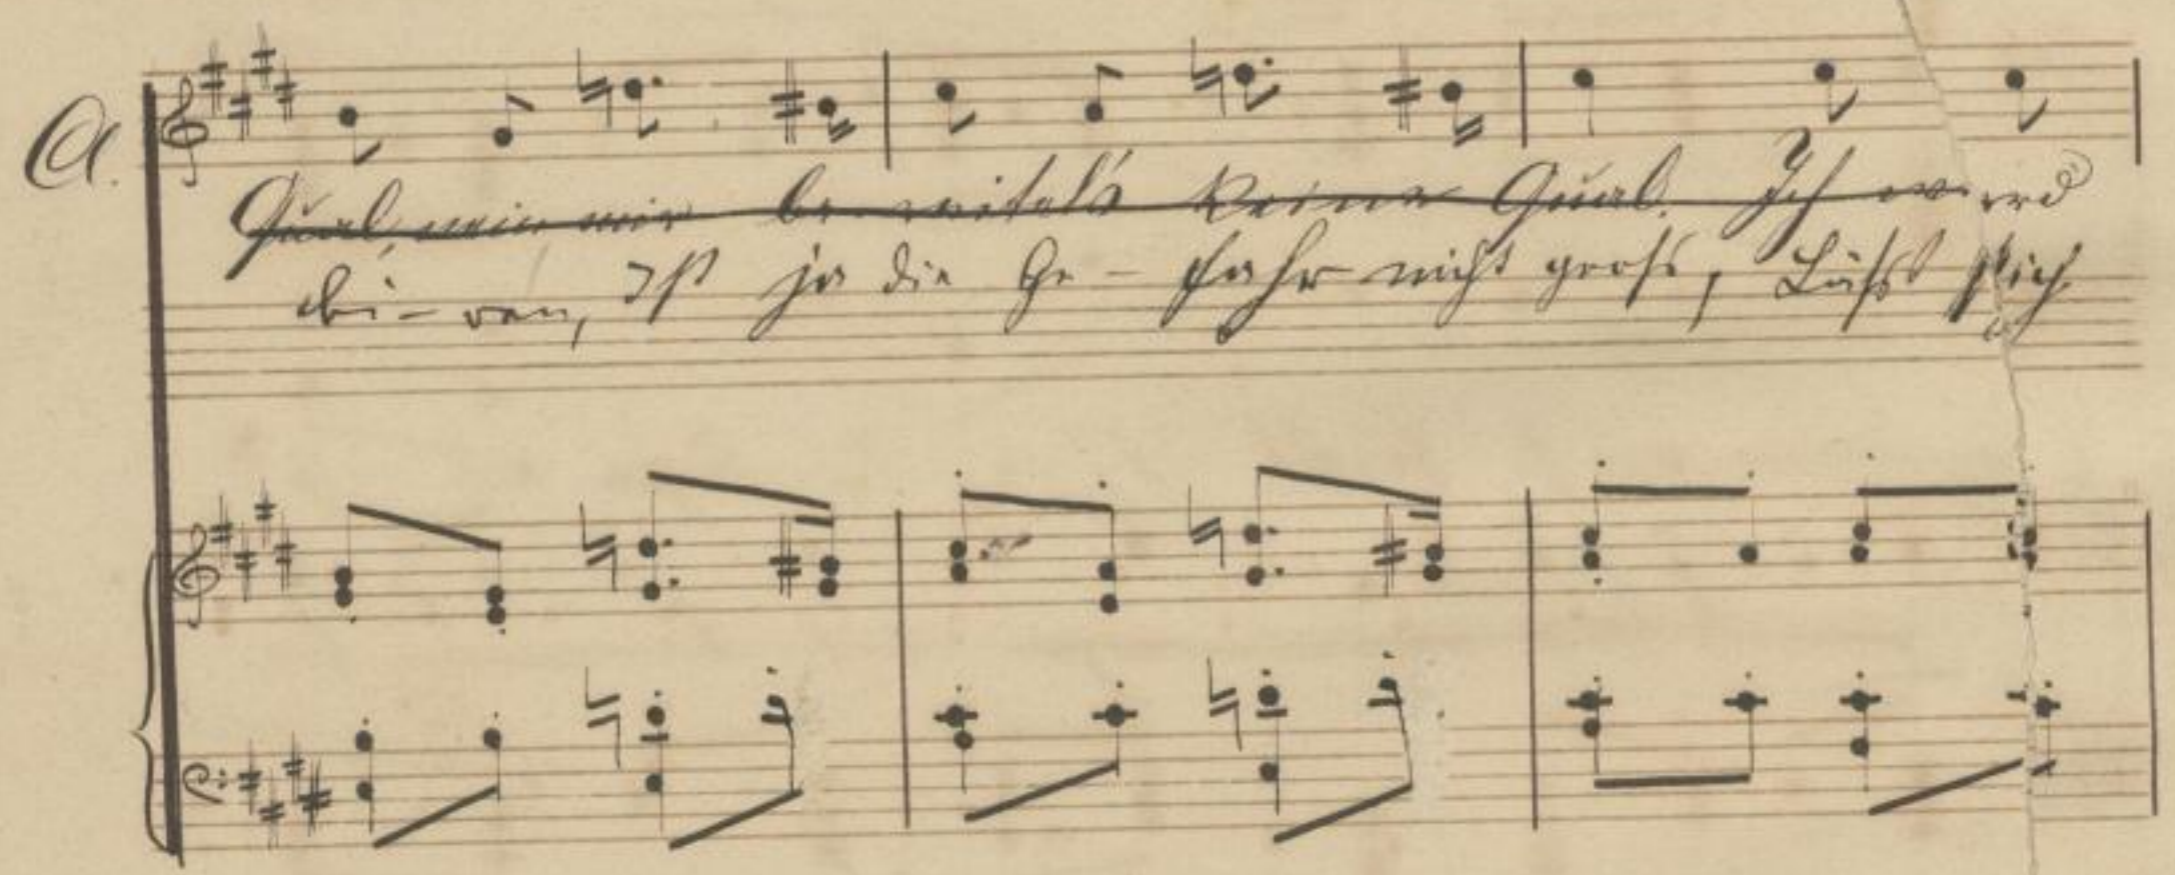 A.
Qual, nein mir be- reitet's keine Qual. Ich werd
bi-ren, Ist ja die Ge-fahr nicht gross, Läßt sich